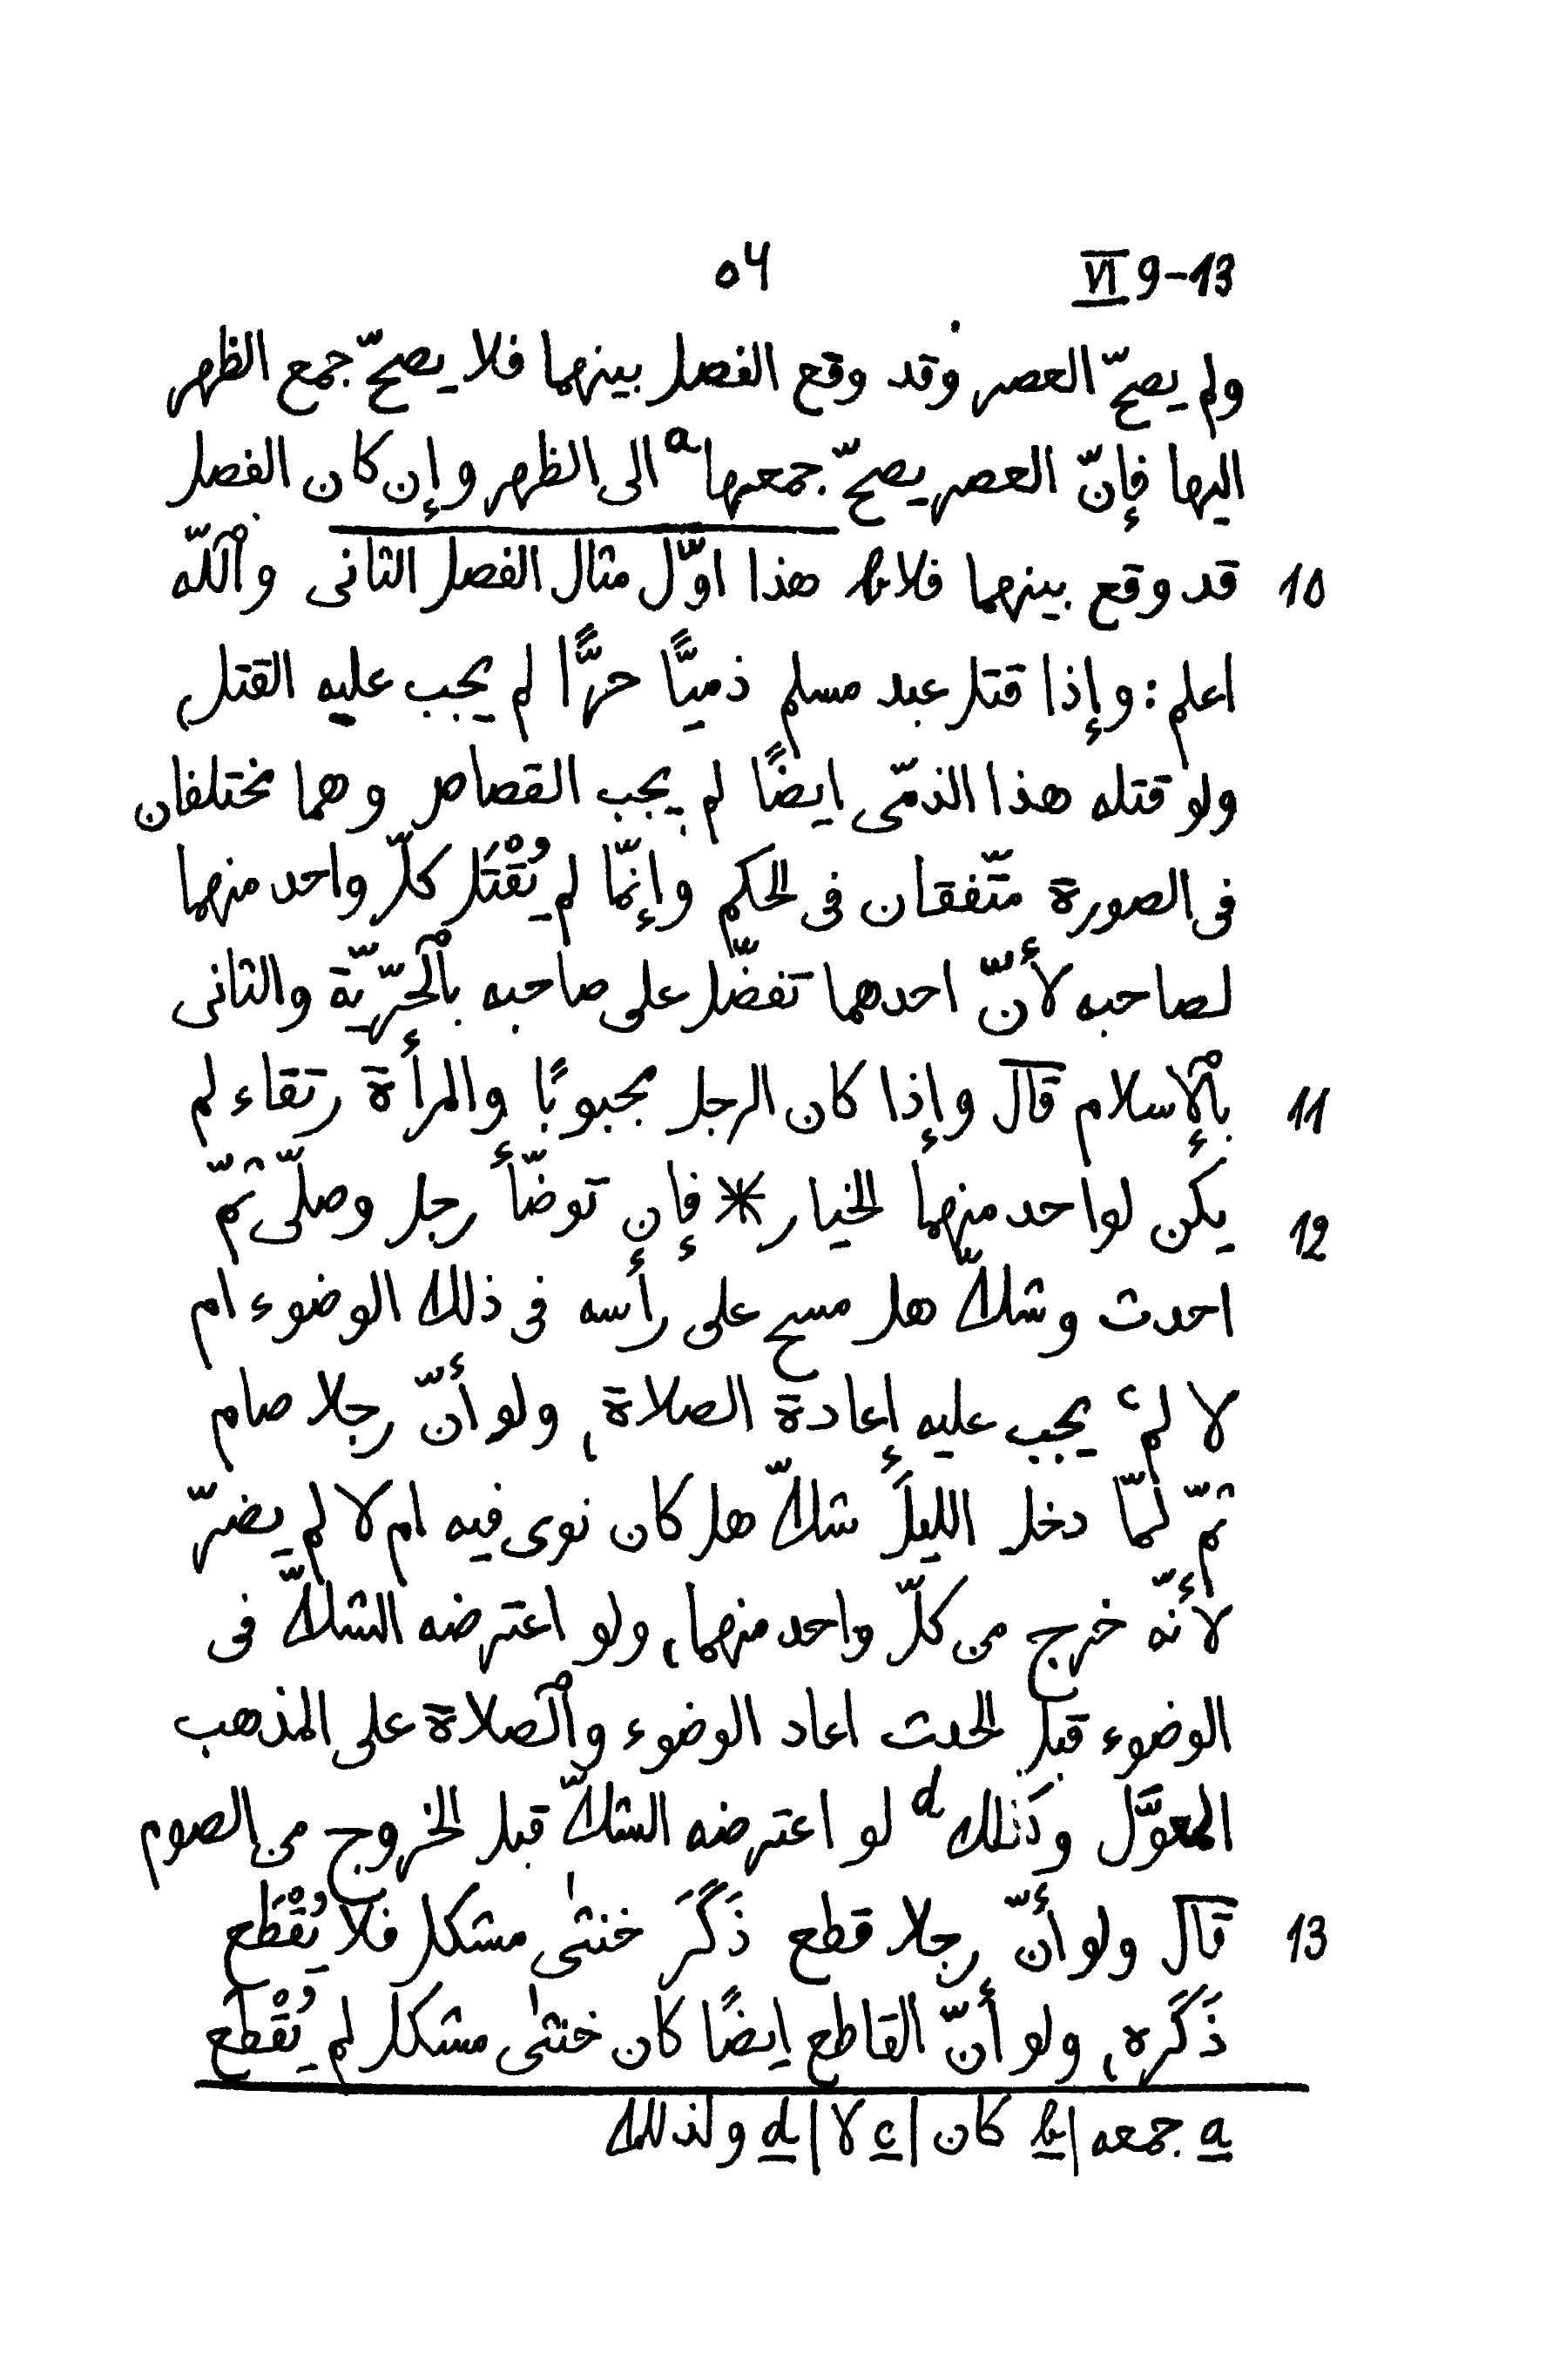 VI 9-13
٥٤
ولم يصحّ العصر وقد وقع الفصل بينهما فلا يصحّ جمع الظهر
اليها فإنّ العصر يصحّ جمعها a الى الظهر وإن كان الفصل
10 قد وقع بينهما فلان b هذا اوّل مثال الفصل الثانى وٱللّه
اعلم: وإذا قتل عبد مسلم ذميًّا حرًّا لم يجب عليه القتل,
ولو قتله هذا الذمّى ايضًا لم يجب القصاص وهما مختلفان
فى الصورة متّفقان فى الحكم وإنّما لم يُقْتَل كلّ واحد منهما
لصاحبه لأنّ احدهما تفضّل على صاحبه بٱلحرّيّة والثانى
11 بٱلإسلام قال وإذا كان الرجل مجبوبًا والمرأة رتقاء لم
12 يكن لواحد منهما الخيار * فإن توضّأ رجل وصلّى ثمّ
احدث وشكّ هل مسح على رأسه فى ذلك الوضوء ام
لا لم c يجب عليه إعادة الصلاة, ولو أنّ رجلا صام
ثمّ لمّا دخل الليل شكّ هل كان نوى فيه ام لا لم يضرّ
لأنّه خرج من كلّ واحد منهما, ولو اعترضه الشكّ فى
الوضوء قبل الحدث اعاد الوضوء وٱلصلاة على المذهب
المعوَّل وكذلك d لو اعترضه الشكّ قبل الخروج من الصوم
13 قال ولو أنّ رجلا قطع ذَكَرَ خنثى مشكل فلا يُقْطَع
ذَكَره, ولو أنّ القاطع ايضًا كان خنثى مشكل لم يُقْطَع
a جمعه | b كان | c لا | d ولذلك